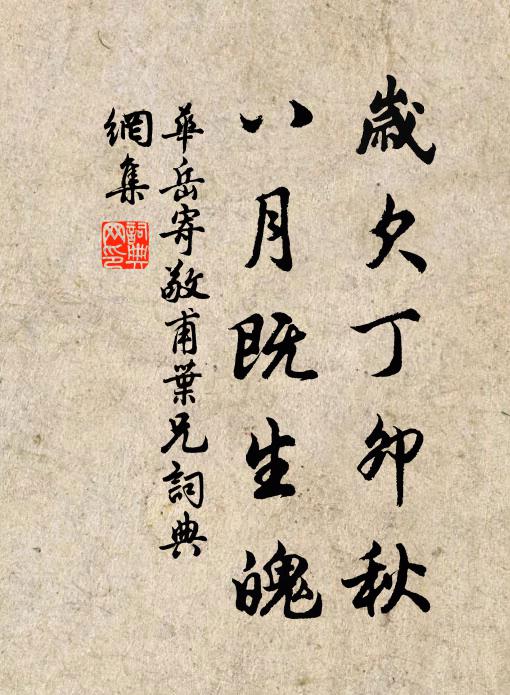 歲欠丁卯秋
八月既生魄
華岳寄敬甫葉兄詞典
網集
詞典
网印